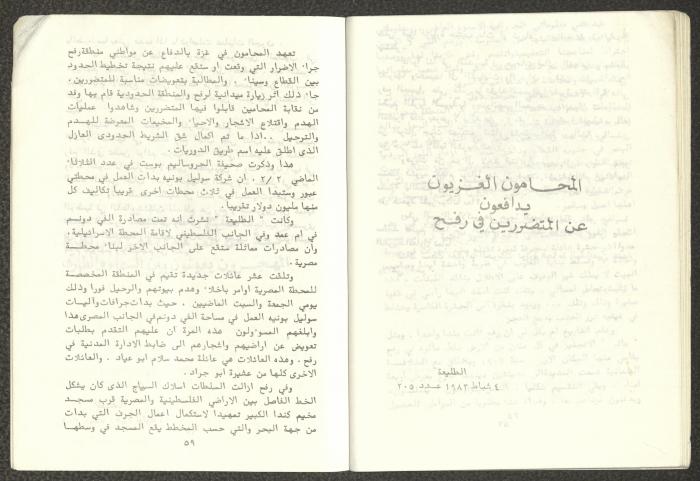 المحامون الغزيون
يدافعون
عن المتضررين في رفح
الطليعة
٤ شباط ١٩٨٢ عدد ٢٠٥
تعهد المحامون في غزة بالدفاع عن مواطني منطقة رفح
جراء الاضرار التي وقعت او ستقع عليهم نتيجة تخطيط الحدود
بين القطاع وسيناء ، والمطالبة بتعويضات مناسبة للمتضررين .
جاء ذلك اثر زيارة ميدانية لرفح والمنطقة الحدودية قام بها وفد
من نقابة المحامين قابلوا فيها المتضررين وشاهدوا عمليات
الهدم واقتلاع الاشجار والاحياء والمخيمات المعرضة للهدم
والترحيل ..اذا ما تم اكمال شق الشريط الحدودي العازل
الذي اطلق عليه اسم طريق الدوريات .
هذا وذكرت صحيفة الجروساليم بوست في عدد الثلاثاء
الماضي ٢/٢ ، ان شركة سوليل بونيه بدأت العمل في محطتي
عبور وستبدأ العمل في ثلاث محطات اخرى قريبا تكاليف كل
منها مليون دولار تقريبا .
وكانت " الطليعة " نشرت انه تمت مصادرة الفي دونم
في ام عمد وفي الجانب الفلسطيني لاقامة المحطة الاسرائيلية .
وأن مصادرات مماثلة ستقع على الجانب الاخر لبناء محطة
مصرية .
وتلقت عشر عائلات جديدة تقيم في المنطقة المخصصة
للمحطة المصرية اوامر باخلاء وهدم بيوتهم والرحيل فورا وذلك
يومي الجمعة والسبت الماضيين . حيث بدأت جرافات وآليات
سوليل بونيه العمل في مساحة الفي دونم في الجانب المصري هذا
وابلغهم المسوءولون هذه المرة ان عليهم التقدم بطلبات
تعويض عن اراضيهم واشجارهم الى ضابط الادارة المدنية في
رفح . وهذه العائلات هي عائلة محمد سلام ابو عياد . والعائلات
الاخرى كلها من عشيرة ابو جراد .
وفي رفح ازالت السلطات اسلاك السياج الذي كان يشكل
الخط الفاصل بين الاراضي الفلسطينية والمصرية قرب مسجد
مخيم كندا الكبير تمهيدا لاستكمال اعمال الجرف التي بدأت
من جهة البحر والتي حسب المخطط يقع المسجد في وسطها
٥٩